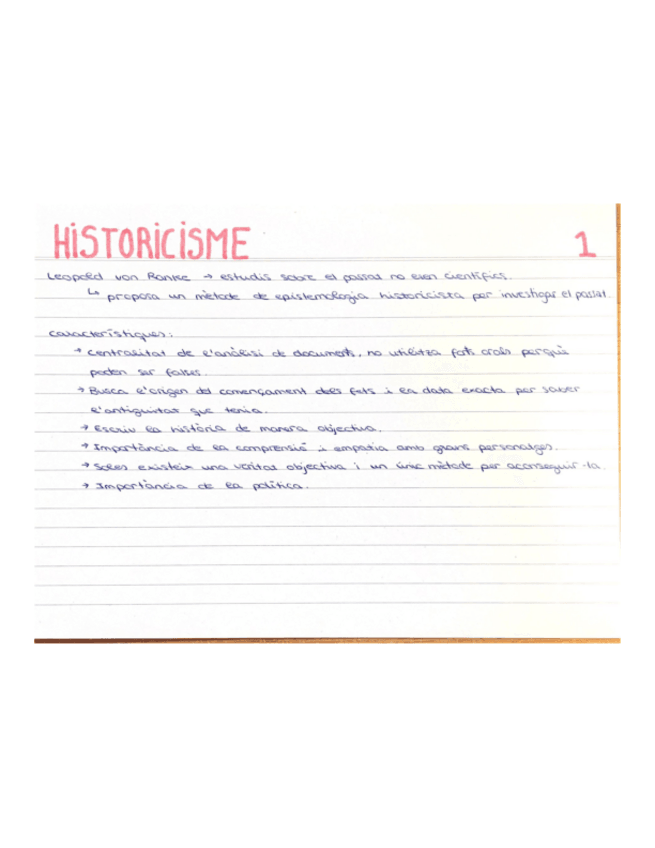 HISTORICISME 1
Leopold von Ranke → estudis sobre el passat no eren científics.
↳ proposa un mètode de epistemologia historicista per investigar el passat.
Característiques:
→ Centralitat de l'anàlisi de documents, no utilitza fonts orals perquè
poden ser falses.
→ Busca l'origen del començament dels fets i la data exacta per saber
l'antiguitat que tenia.
→ Escriu la història de manera objectiva.
→ Importància de la comprensió i empatia amb grans personatges.
→ Soles existeix una veritat objectiva i un únic mètode per aconseguir-la.
→ Importància de la política.